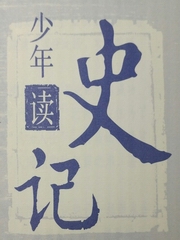 少年
读
史
记